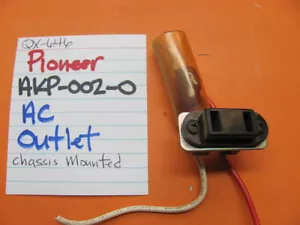 QX-646
Pioneer
AKP-002-0
AC
Outlet
Chassis Mounted